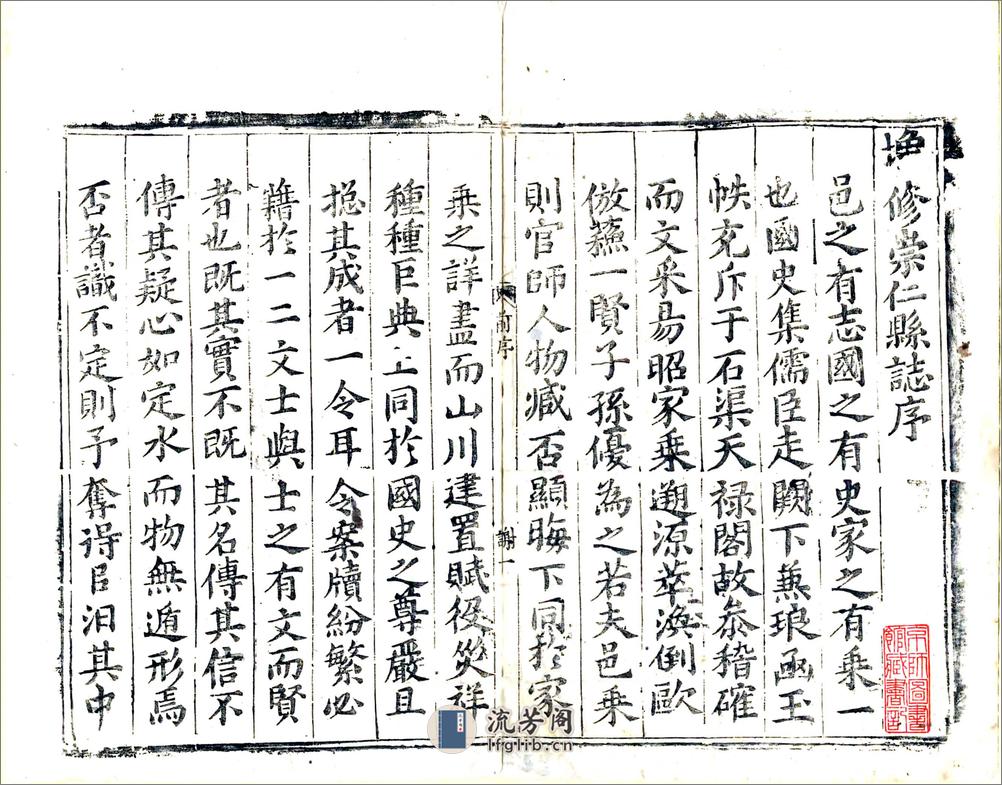 修崇仁縣誌序
邑之有志國之有史家之有乗一
也國史集儒臣走闕下蒸琅函玉
帙充斥于石渠天禄閣故叅稽確
而文采易昭家乗遡源萃渙倒歐
倣蘓一賢子孫優為之若夫邑乗
則官師人物臧否顯晦下同扵家
前序
謝一
乗之詳盡而山川建置賦役災祥
種種巨典上同扵國史之尊嚴且
揔其成者一令耳令案牘紛繁必
籍扵一二文士與士之有文而賢
者也既其實不既其名傳其信不
傳其疑心如定水而物無遁形焉
否者識不定則予奪得㠯汨其中
流芳阁
lfglib.cn